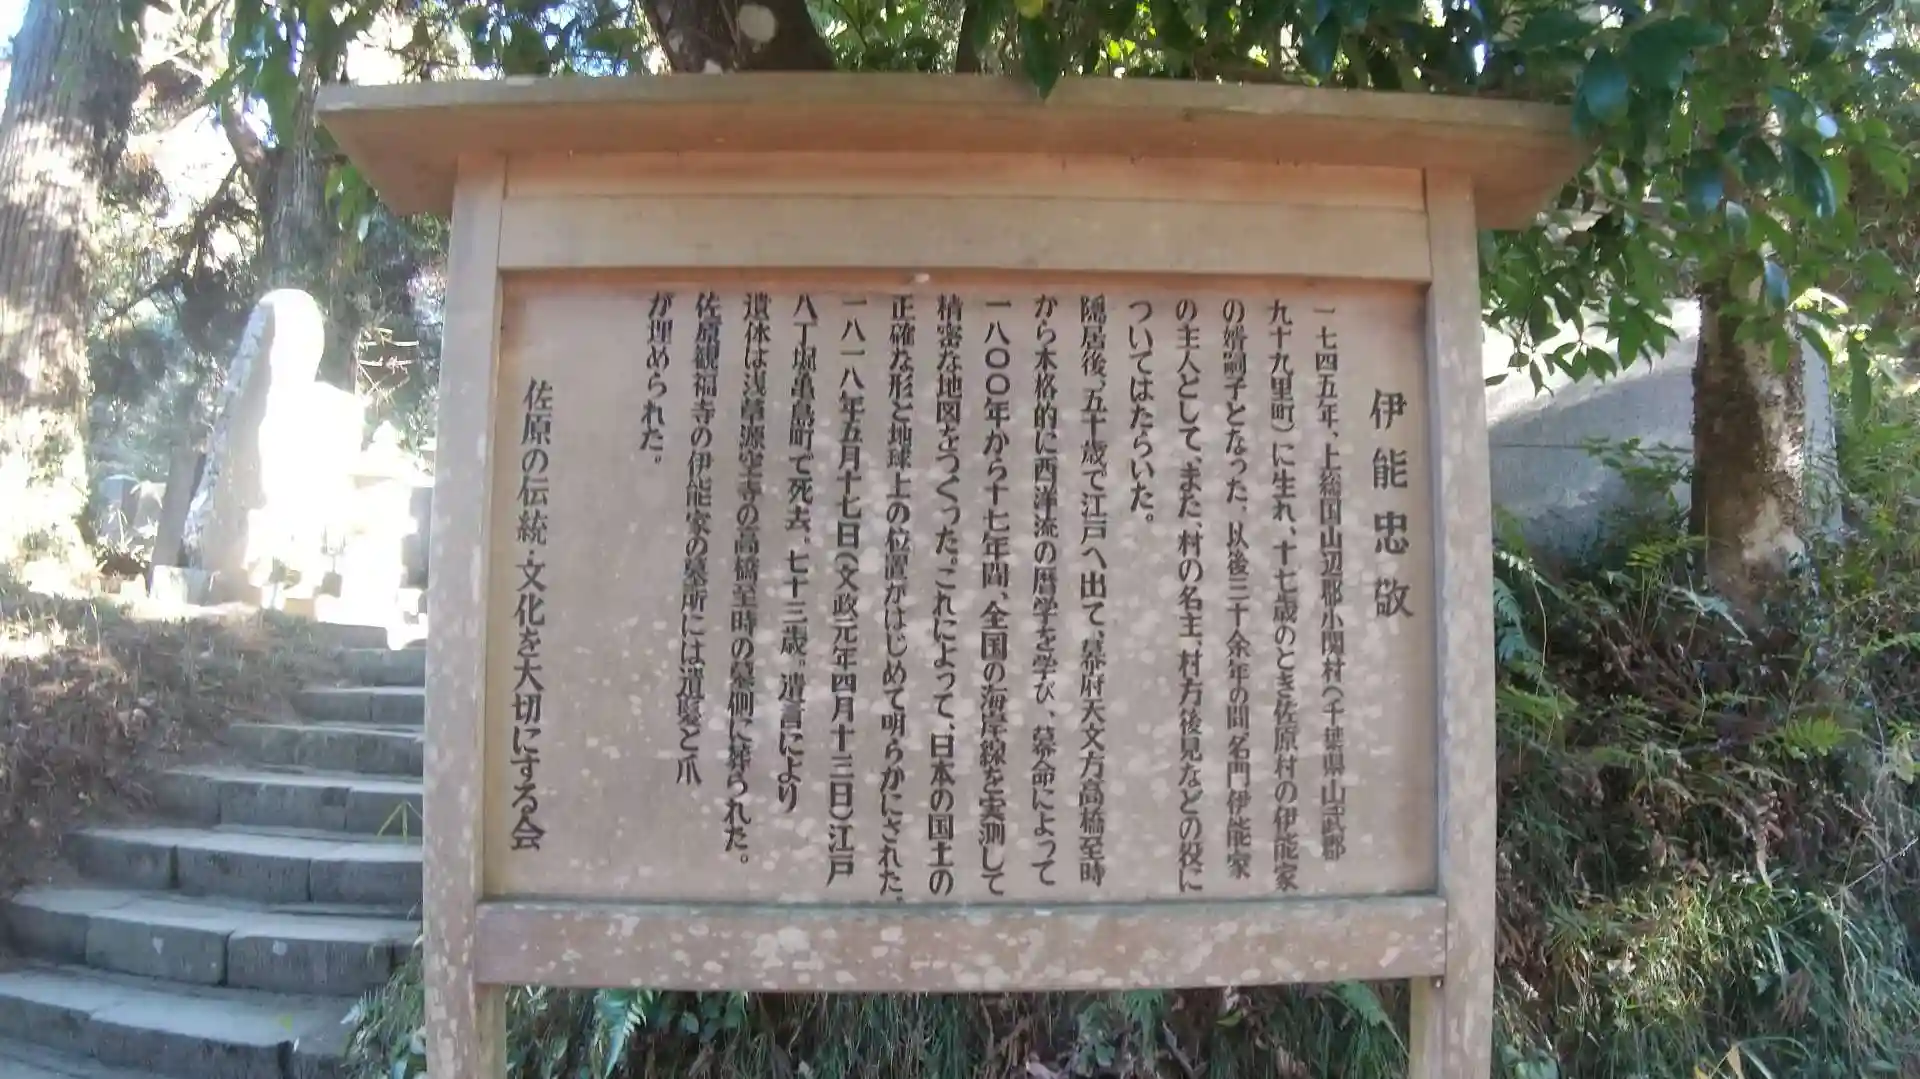 伊能忠敬
一七四五年、上総国山辺郡小関村(千葉県山武郡
九十九里町)に生れ、十七歳のとき佐原村の伊能家
の婿嗣子となった。以後三十余年の間、名門伊能家
の主人として、また、村の名主、村方後見などの役に
ついてはたらいた。
隠居後、五十歳で江戸へ出て、幕府天文方高橋至時
から本格的に西洋流の暦学を学び、幕命によって
一八〇〇年から十七年間、全国の海岸線を実測して
精密な地図をつくった。これによって、日本の国土の
正確な形と地球上の位置がはじめて明らかにされた。
一八一八年五月十七日(文政元年四月十三日)江戸
八丁堀亀島町で死去、七十三歳。遺言により
遺体は浅草源空寺の高橋至時の墓側に葬られた。
佐原観福寺の伊能家の墓所には遺髪と爪
が埋められた。
佐原の伝統・文化を大切にする会